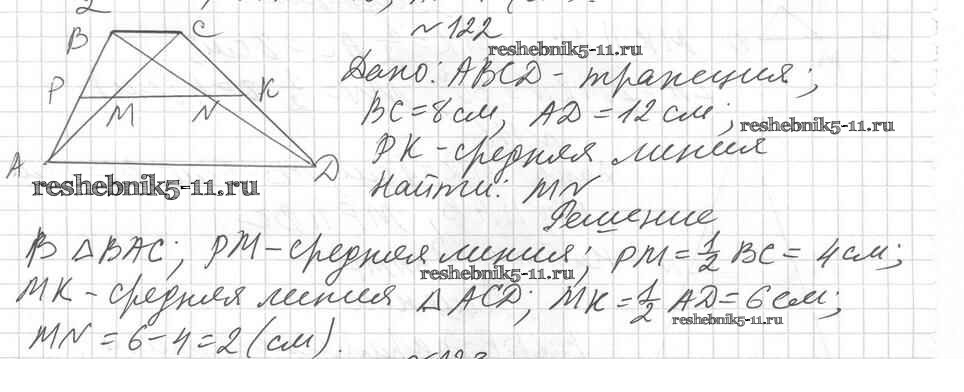 №122
reshebnik5-11.ru
B C
Дано: ABCD - трапеция;
P M N K
BC = 8 см, AD = 12 см;
reshebnik5-11.ru
PK - средняя линия
A D
reshebnik5-11.ru
Найти: MN
Решение
В △BAC; PM - средняя линия; PM = 1/2 BC = 4 см;
reshebnik5-11.ru
MK - средняя линия △ACD; MK = 1/2 AD = 6 см;
reshebnik5-11.ru
MN = 6 - 4 = 2 (см).